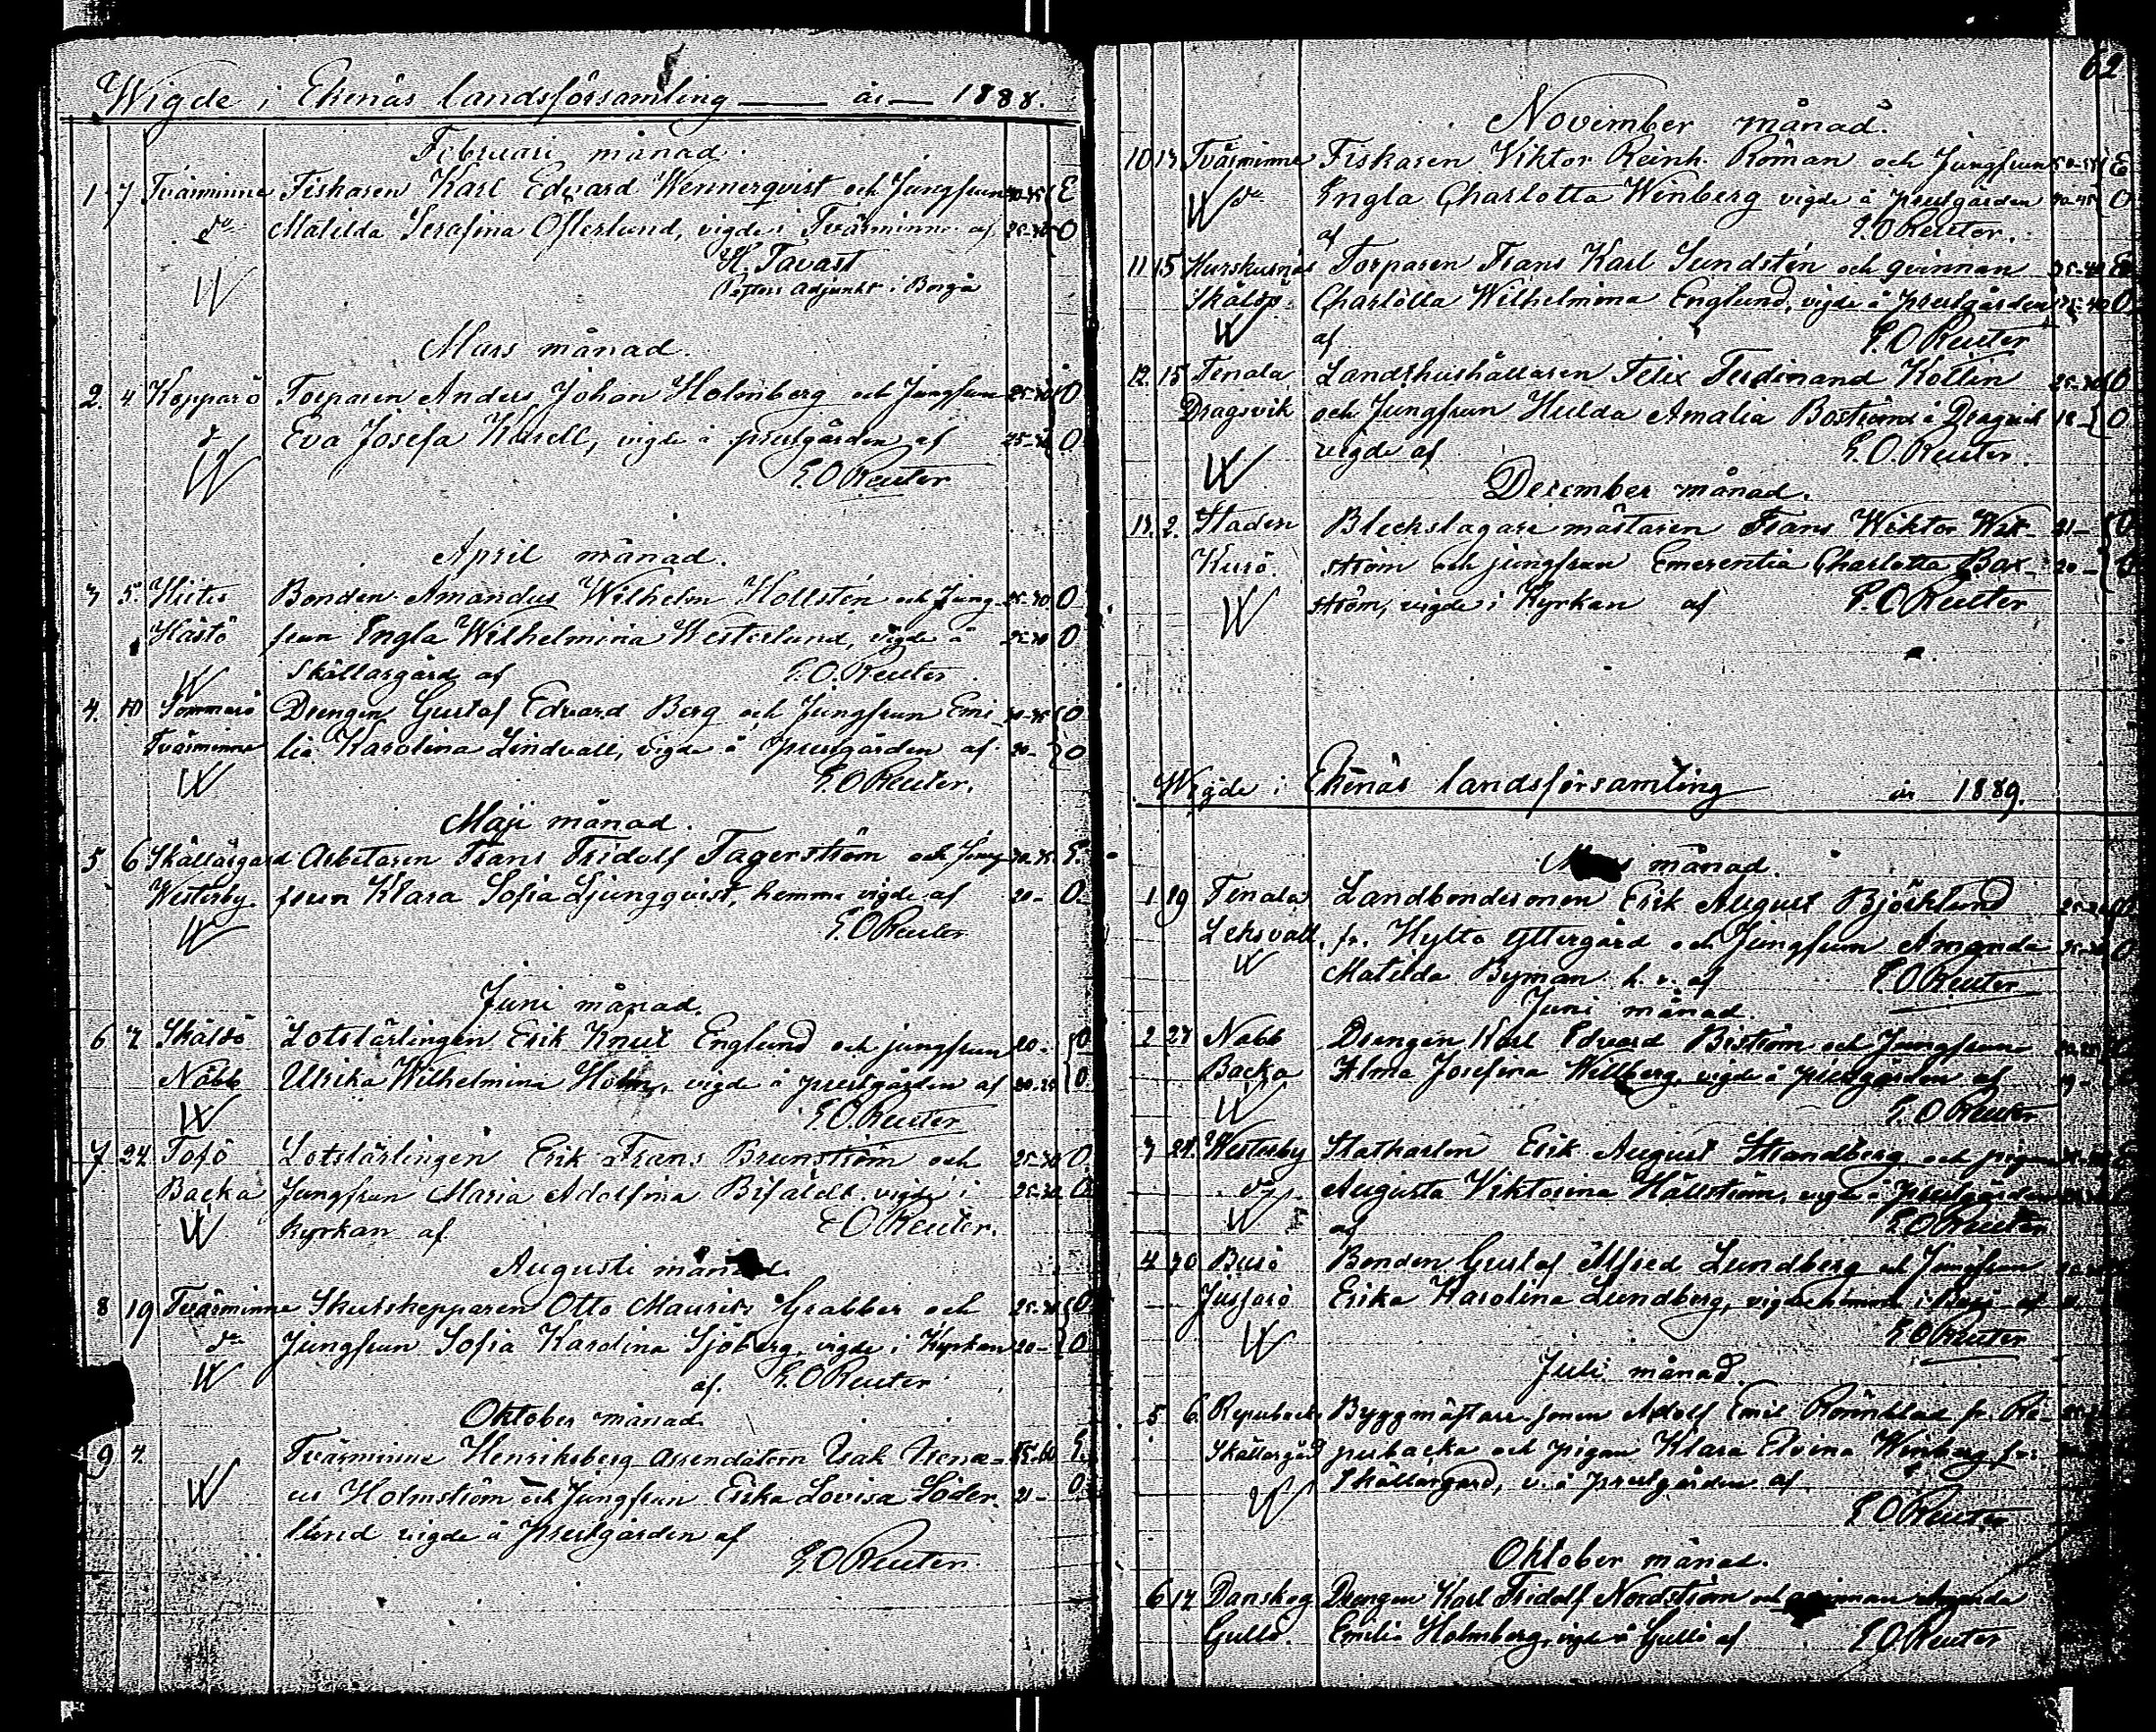 Wigde i Ekenäs landsförsamling — år — 1888.
Februari månad.
1 7 Tvärminne Fiskaren Karl Edvard Wennerqvist och Jungfrun 30-35 E
do Matilda Serafina Österlund, vigde i Tvärminne af 25-30 O
H. Tavast
Adjunkt i Borgå
Mars månad.
2. 4. Kopparö Torparen Anders Johan Holmberg och Jungfrun 25-30 O
d Eva Josefa Karell, vigde å prestgården af 25-30 O
E O Reuter
April månad.
3 5. Hitis Bonden Amandus Wilhelm Hollstén och Jung- 25-30 O
Hästö frun Engla Wilhelmina Westerlund, vigde å 25-30 O
Skållargård af E. O. Reuter
4. 10 Sommarö Drengen Gustaf Edvard Berg och Jungfrun Emi 30-35 O
Tvärminne lia Karolina Lindvall, vigde å prestgården af 20- O
E. O Reuter.
Maji månad.
5. 6 Skållargard Arbetaren Frans Fridolf Fagerström och Jung 30-35 E.
Westerby. frun Klara Sofia Ljungqvist, hemma vigde af 20- O.
E. O Reuter
Juni månad.
6 7 Skåldö Lotslärlingen Erik Knut Englund och jungfrun 20- O
Näbb Ulrika Wilhelmina Holm, vigde å prestgården af 20-25 O
E. O. Reuter
7 24 Torö Lotslärlingen Erik Frans Brunström och 25-30 O.
Backa Jungfrun Maria Adolfina vigde i 25-30 O
Kyrkan af E O Reuter.
Augusti månad.
8 19 Tvärminne Skutskepparen Otto Maurits Grabber och 25-30 O
do Jungfrun Sofia Karolina Sjöberg, vigde i Kyrkan 20- O
af. E. O Reuter
Oktober månad.
9 4. Tvärminne Henriksberg arrendatorn Isak 55-60 E.
us Holmström och Jungfrun Erika Lovisa Söder 21- O.
lund vigde å prestgården af
E. O Reuter
62
November månad.
10 13 Tvärminne Fiskaren Viktor Reinh. Roman och Jungfrun 50-55 E
do Engla Charlotta Winberg vigde å prestgården 40-45 O
af E. O Reuter.
11 15 Torparen Frans Karl Sundstén och qvinnan 35-40 E
Skåldö Charlotta Wilhelmina Englund, vigde å prestgården 35-40 O
af E. O Reuter
12. 15 Tenala Landthushållaren Felix Ferdinand Kollin 25-30 O
Dragsvik och Jungfrun Hulda Amalia Boström i Dragsvik 18- O
vigde af E. O. Reuter.
December månad.
13. 2. Staden Bleckslagare mästaren Frans Wiktor Wik- 21- O
Kusö. ström och jungfrun Emerentia Charlotta Bax- 20- O
ström, vigde i Kyrkan af E. O Reuter
Wigde i Ekenäs landsförsamling år 1889.
Mars månad.
1 19 Tenala Landbondesonen Erik August Björklund
Leksvall. fr. Hylta Yttergård och Jungfrun Amanda
Matilda Byman h. v. af E. O Reuter
Juni månad.
2 27 Näbb Drengen Karl Edvard Biström och Jungfrun
Backa Alma Josefina Willberg, vigde å prestgården af
E. O Reuter
3 28. Westerby Statkarlen Erik August Strandberg och pigan
do Augusta Viktorina Hällström, vigde å prestgården
af E O Reuter
4 30 Busö Bonden Gustaf Alfred Lundberg och Jungfrun
Jussarö Erika Karolina Lundberg, vigde hemma i Busö af
E O Reuter
Juli månad.
5. 6. Repubacka Byggmästare sonen Adolf Emil Rönnblad fr. Re-
Skållargård pubacka och pigan Klara Elvina Winberg fr.
Skållargård, v. å prestgården af
E O Reuter
Oktober månad.
6 17 Danskog Drengen Karl Fridolf Nordström och qvinnan Amanda
Gullö. Emilia Holmberg, vigde å Gullö af E. O Reuter